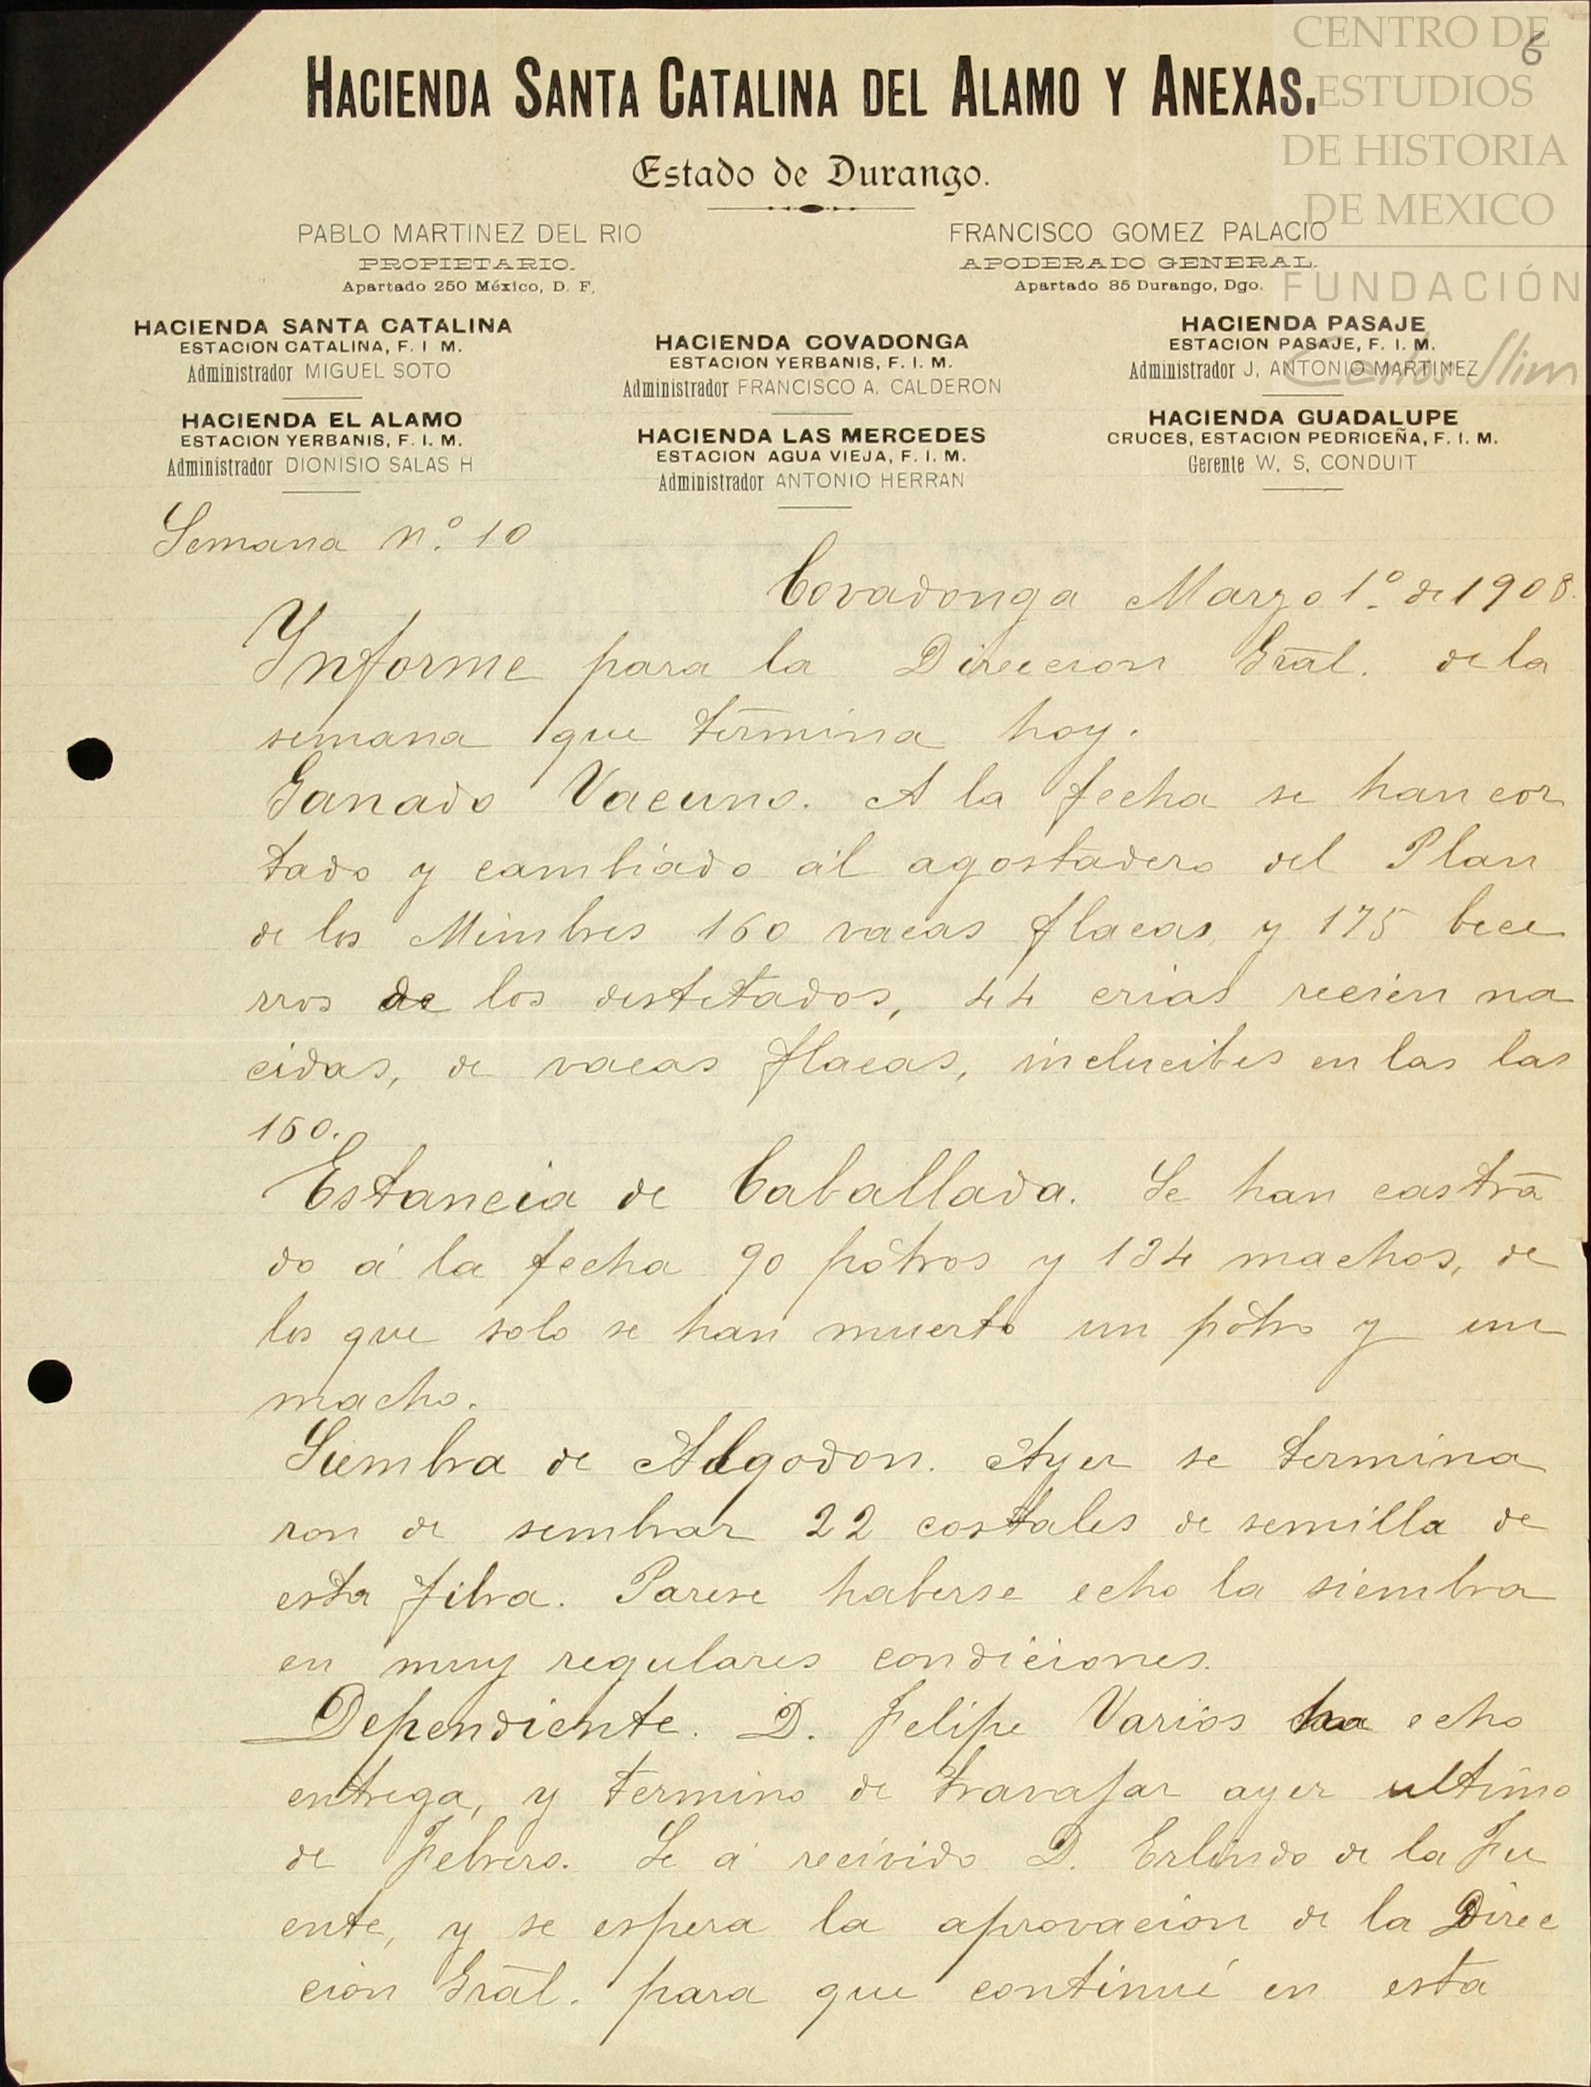 6
CENTRO DE
ESTUDIOS
DE HISTORIA
DE MEXICO
FUNDACIÓN
Carlos Slim
HACIENDA SANTA CATALINA DEL ALAMO Y ANEXAS.
Estado de Durango.
PABLO MARTINEZ DEL RIO
PROPIETARIO.
Apartado 250 México, D. F.
FRANCISCO GOMEZ PALACIO
APODERADO GENERAL.
Apartado 85 Durango, Dgo.
HACIENDA SANTA CATALINA
ESTACION CATALINA, F. I M.
Administrador MIGUEL SOTO
HACIENDA EL ALAMO
ESTACION YERBANIS, F. I. M.
Administrador DIONISIO SALAS H
HACIENDA COVADONGA
ESTACION YERBANIS, F. I. M.
Administrador FRANCISCO A. CALDERON
HACIENDA LAS MERCEDES
ESTACION AGUA VIEJA, F. I. M.
Administrador ANTONIO HERRAN
HACIENDA PASAJE
ESTACION PASAJE, F. I. M.
Administrador J. ANTONIO MARTINEZ
HACIENDA GUADALUPE
CRUCES, ESTACION PEDRICEÑA, F. I. M.
Gerente W. S. CONDUIT
Semana n.º 10
Covadonga Marzo 1.º de 1908.
Ynforme para la Direccion Gral. de la
semana que termina hoy.
Ganado Vacuno. A la fecha se han cor
tado y cambiado al agostadero del Plan
de los Mimbres 160 vacas flacas y 175 bece
rros de los destetados, 44 crias recien na
cidas, de vacas flacas, inclucibes en las las
160.
Estancia de Caballada. Se han castra
do á la fecha 90 pótros y 134 machos, de
los que solo se han muerto un pótro y un
macho.
Siembra de Algodon. Ayer se termina
ron de sembrar 22 costales de semilla de
esta fibra. Parese haberse echo la siembra
en muy regulares condiciones.
Dependiente. D. Felipe Varios ha echo
entrega, y termino de travajar ayer ultimo
de Febrero. Se á recivido D. Erlindo de la Fu
ente, y se espera la aprovacion de la Direc
cion Gral. para que continué en esta